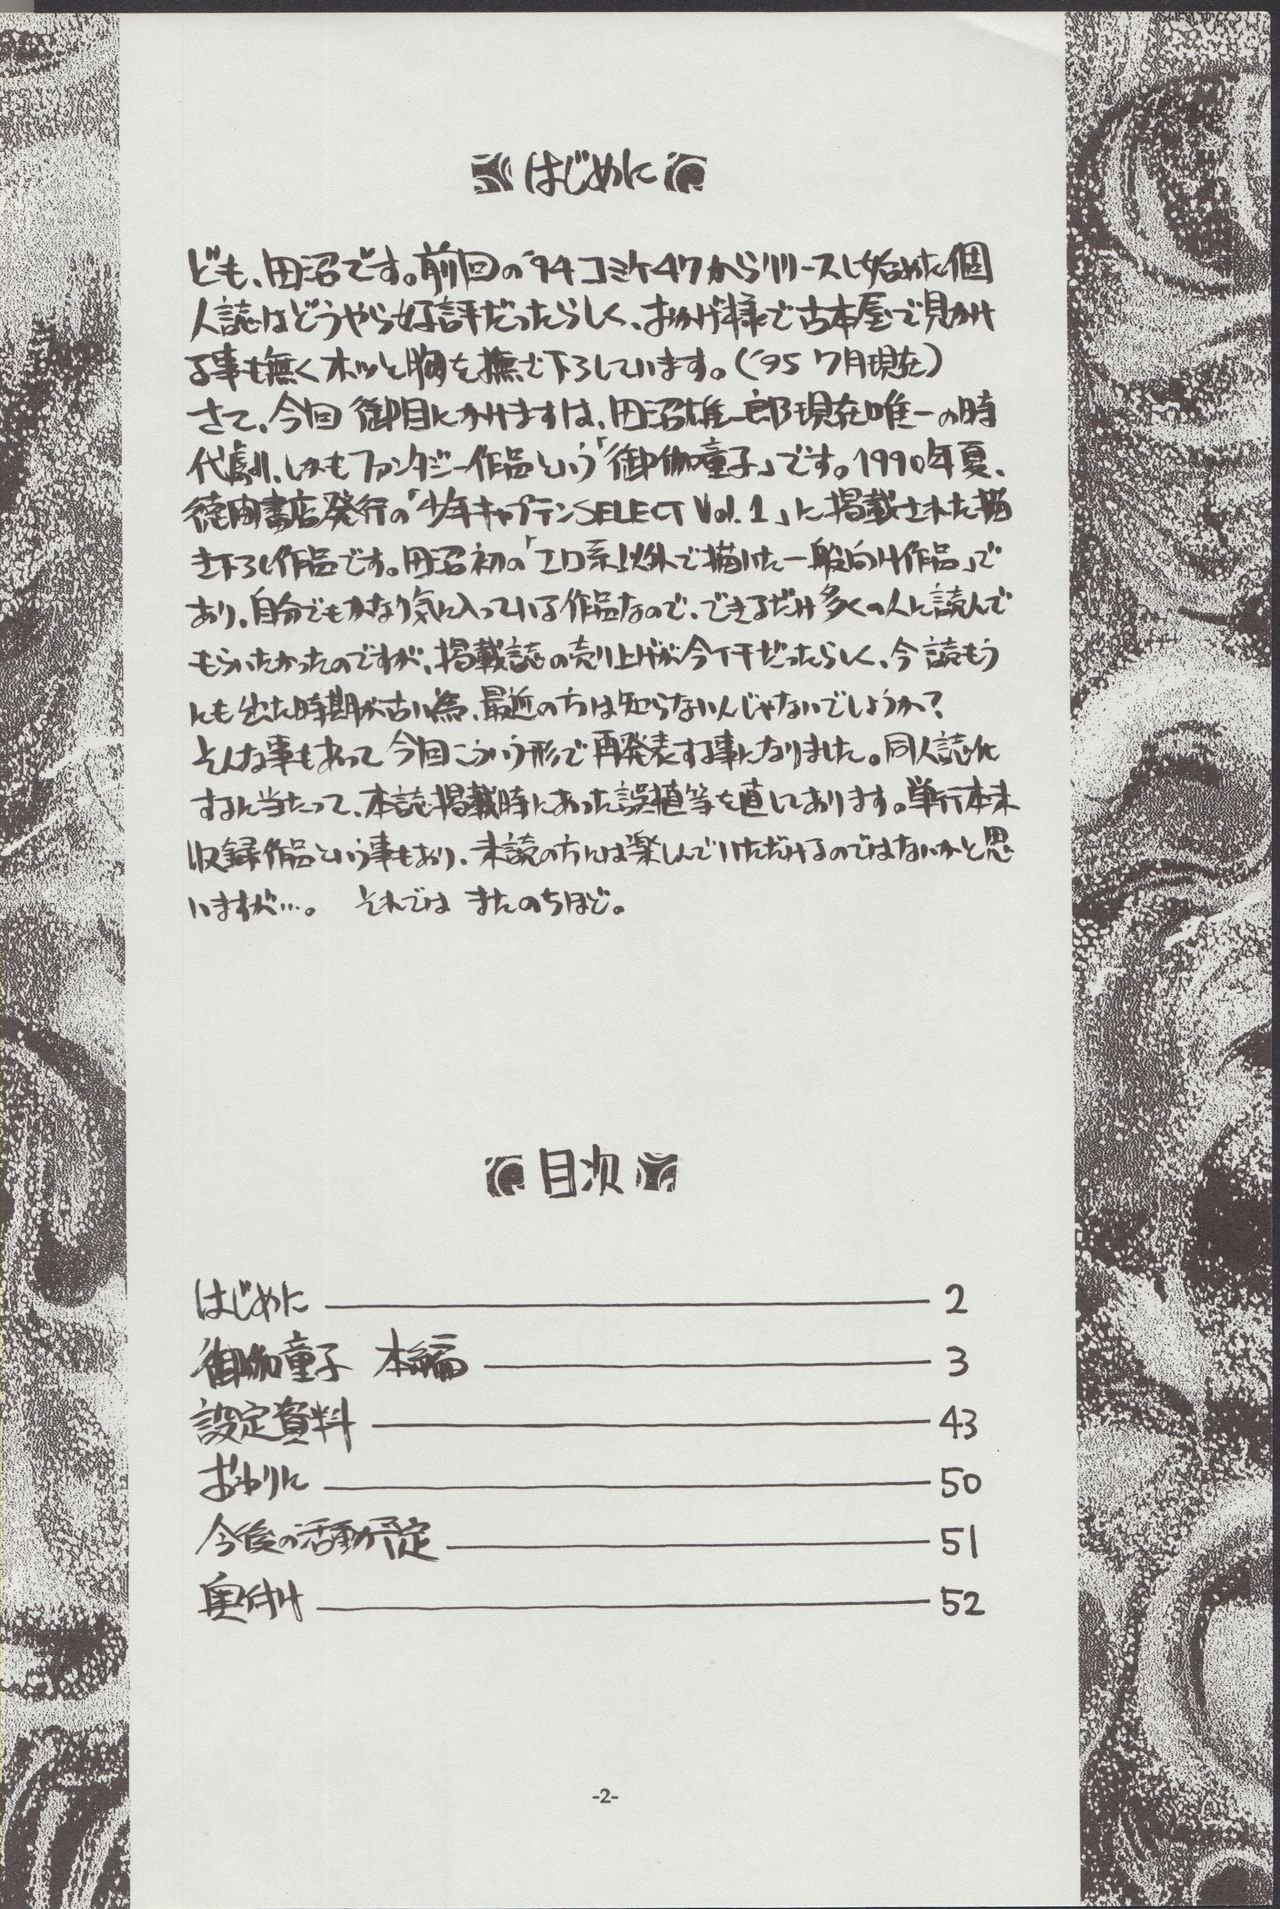 はじめに
ども、田沼です。前回の'94コミケ47からリリースし始めた個
人誌はどうやら好評だったらしく、おかげ様で古本屋で見かけ
る事も無くホッと胸を撫で下ろしています。('95 7月現在)
さて、今回御目にかけますは、田沼雄一郎現在唯一の時
代劇、しかもファンタジー作品という「御伽童子」です。1990年夏、
徳間書店発行の「少年キャプテンSELECT Vol.1」に掲載された描
き下ろし作品です。田沼初の「エロ系以外で描けた一般向け作品」で
あり、自分でもかなり気に入っている作品なので、できるだけ多くの人に読んで
もらいたかったのですが、掲載誌の売り上げが今イチだったらしく、今読もう
にも出た時期が古い為、最近の方は知らないんじゃないでしょうか?
そんな事もあって今回こういう形で再発表する事になりました。同人誌化
するに当たって、本誌掲載時にあった誤植等を直してあります。単行本未
収録作品という事もあり、未読の方には楽しんでいただけるのではないかと思
いますが…。 それではまたのちほど。
目次
はじめに 2
御伽童子 本編 3
設定資料 43
おわりに 50
今後の活動予定 51
奥付け 52
-2-